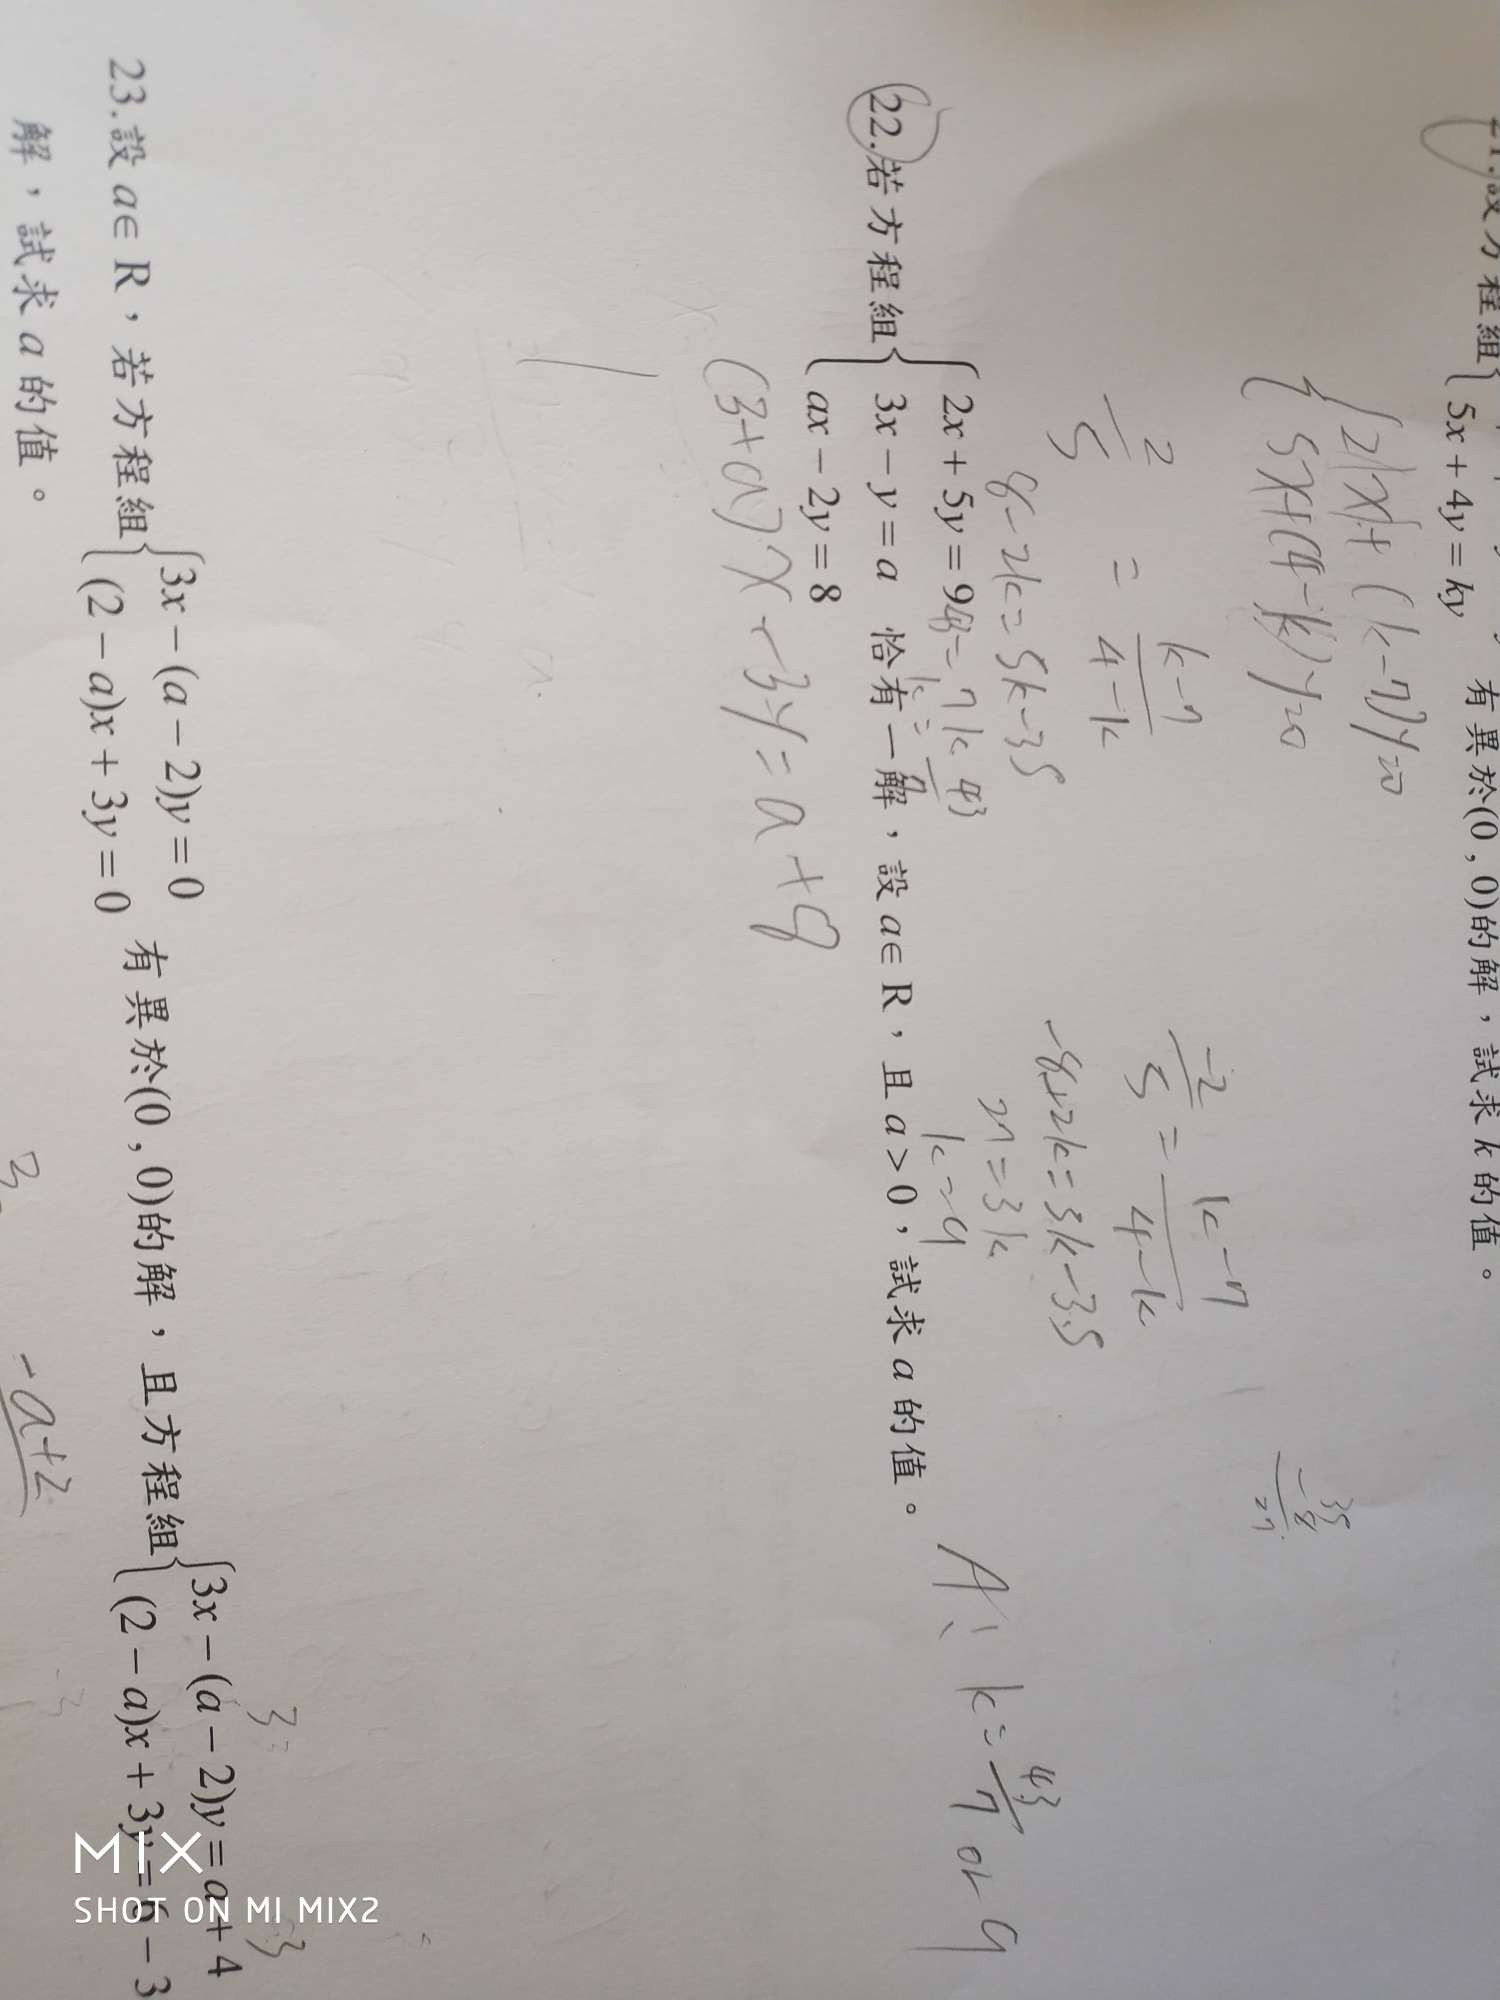 21.設方程組
5x + 4y = ky 有異於(0 , 0)的解，試求 k 的值。
2x + (k-7)y=0
5x+(4-k)y=0
2/5 = (k-7)/(4-k)
8-2k=5k-35
43=7k
k=43/7
-2/5 = (k-7)/(4-k)
-8+2k=5k-35
27=3k
k=9
35
-8
27
A: k=43/7 or 9
22.若方程組
2x + 5y = 9
3x − y = a
ax − 2y = 8
恰有一解，設 a∈ R，且 a > 0，試求 a 的值。
(3+a)x-3y=a+8
23.設 a∈ R，若方程組
3x − (a − 2)y = 0
(2 − a)x + 3y = 0
有異於(0 , 0)的解，且方程組
3x − (a − 2)y = a + 4
(2 − a)x + 3y = 6 − 3
解，試求 a 的值。
3
-a+2
MIX
SHOT ON MI MIX2